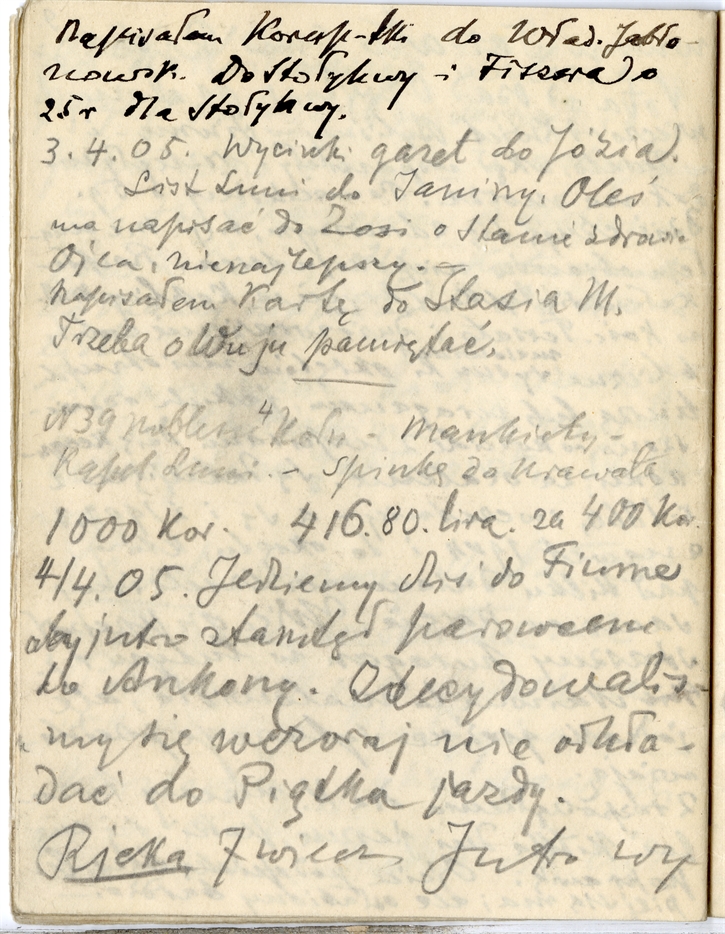 Napisałem Koresp-tki do Wład. Jabło-
nowsk. Do Stołyhwy i Fiszera) o
25 r dla Stołyhwy.
3. 4. 05. Wycinki gazet do Józia).
List Luni do Janiny. Oleś
ma napisać do Zosi o stanie zdrowia
Ojca, nienajlepszy. -
Napisałem Kartę do Stasia M.
Trzeba o Wuju pamiętać.
N 39 4 Koln - Mankiety -
Kapel. Luni. - Spinkę do Krawata
1000 Kor. 416.80. lira. za 400 Kor.
4/4. 05. Jedziemy dziś do Fiume
aby jutro stamtąd parowcem
do Ankony. Zdecydowaliś-
my się wczoraj nie odkła-
dać do Piątku jazdy.
Rjeka 7 wiecz. Jutro wy